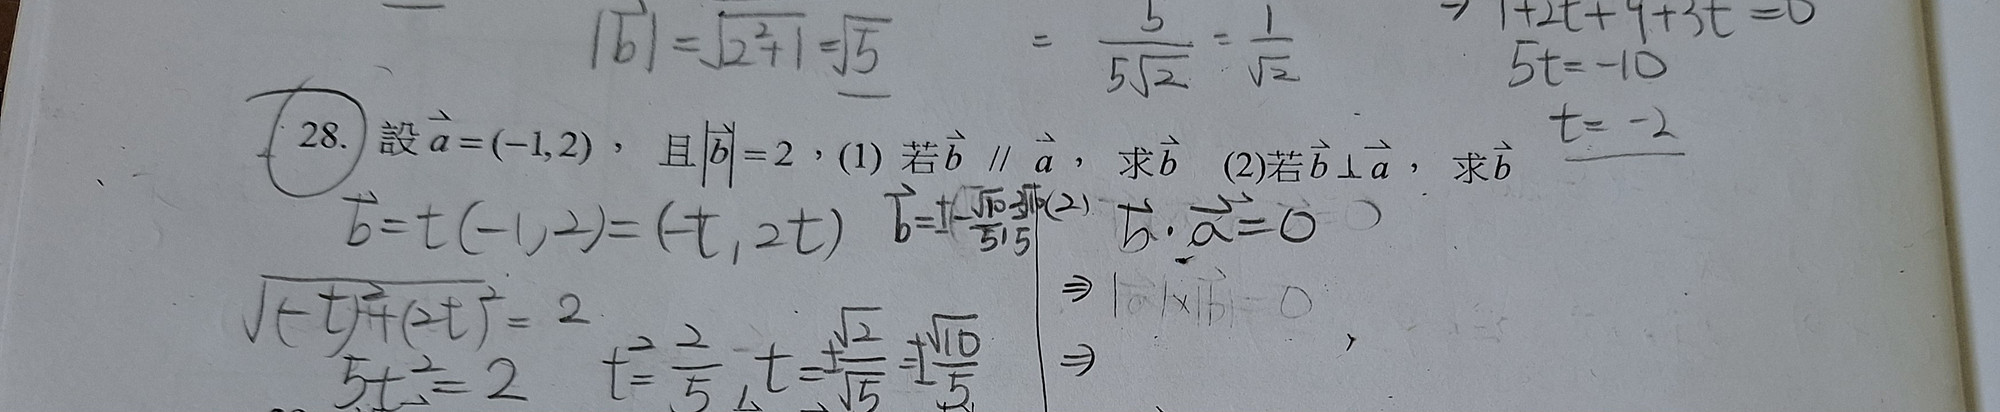 |b⃗| = √(2²+1) = √5
= 5/(5√2) = 1/√2
→ 1+2t+9+3t=0
5t=-10
t=-2
28. 設 a⃗=(-1,2)， 且|b⃗|=2，(1) 若b⃗ // a⃗， 求b⃗ (2)若b⃗⊥a⃗， 求b⃗
b⃗=t(-1,2)=(-t,2t) b⃗=±(-√10/5, (2) b⃗·a⃗=0
√((-t)²+(2t)²)=2
⇒ |a⃗|×|b⃗|=0
5t²=2 t²=2/5, t=±√2/√5=±√10/5
⇒